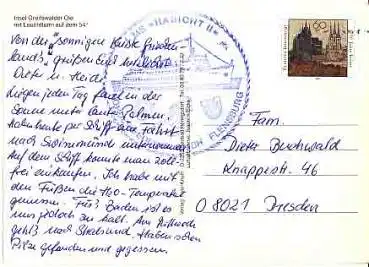 Insel Greifswalder Oie
mit Leuchtturm auf dem 54°
Von der "sonnigen Küste Fries
lands" grüßen Euch herzlichst
Liegen jeden Tag faul in der
Sonne unter lauter Palmen,
habe heute per Schiff eine Fahrt
nach Swinemünde unternommen
Auf dem Schiff konnte man zoll-
frei einkaufen. Ich habe mit
den Füßen die H2O-Temperatur
gemessen. Fürs Baden ist es
uns jedoch zu kalt. Am Mittwoch
geht's nach Stralsund. Haben schon
Pilze gefunden und gegessen.
"HABICHT II"
FLENSBURG
60
Fam.
Dieter Buchwald
Knappestr. 46
O 8021 Dresden